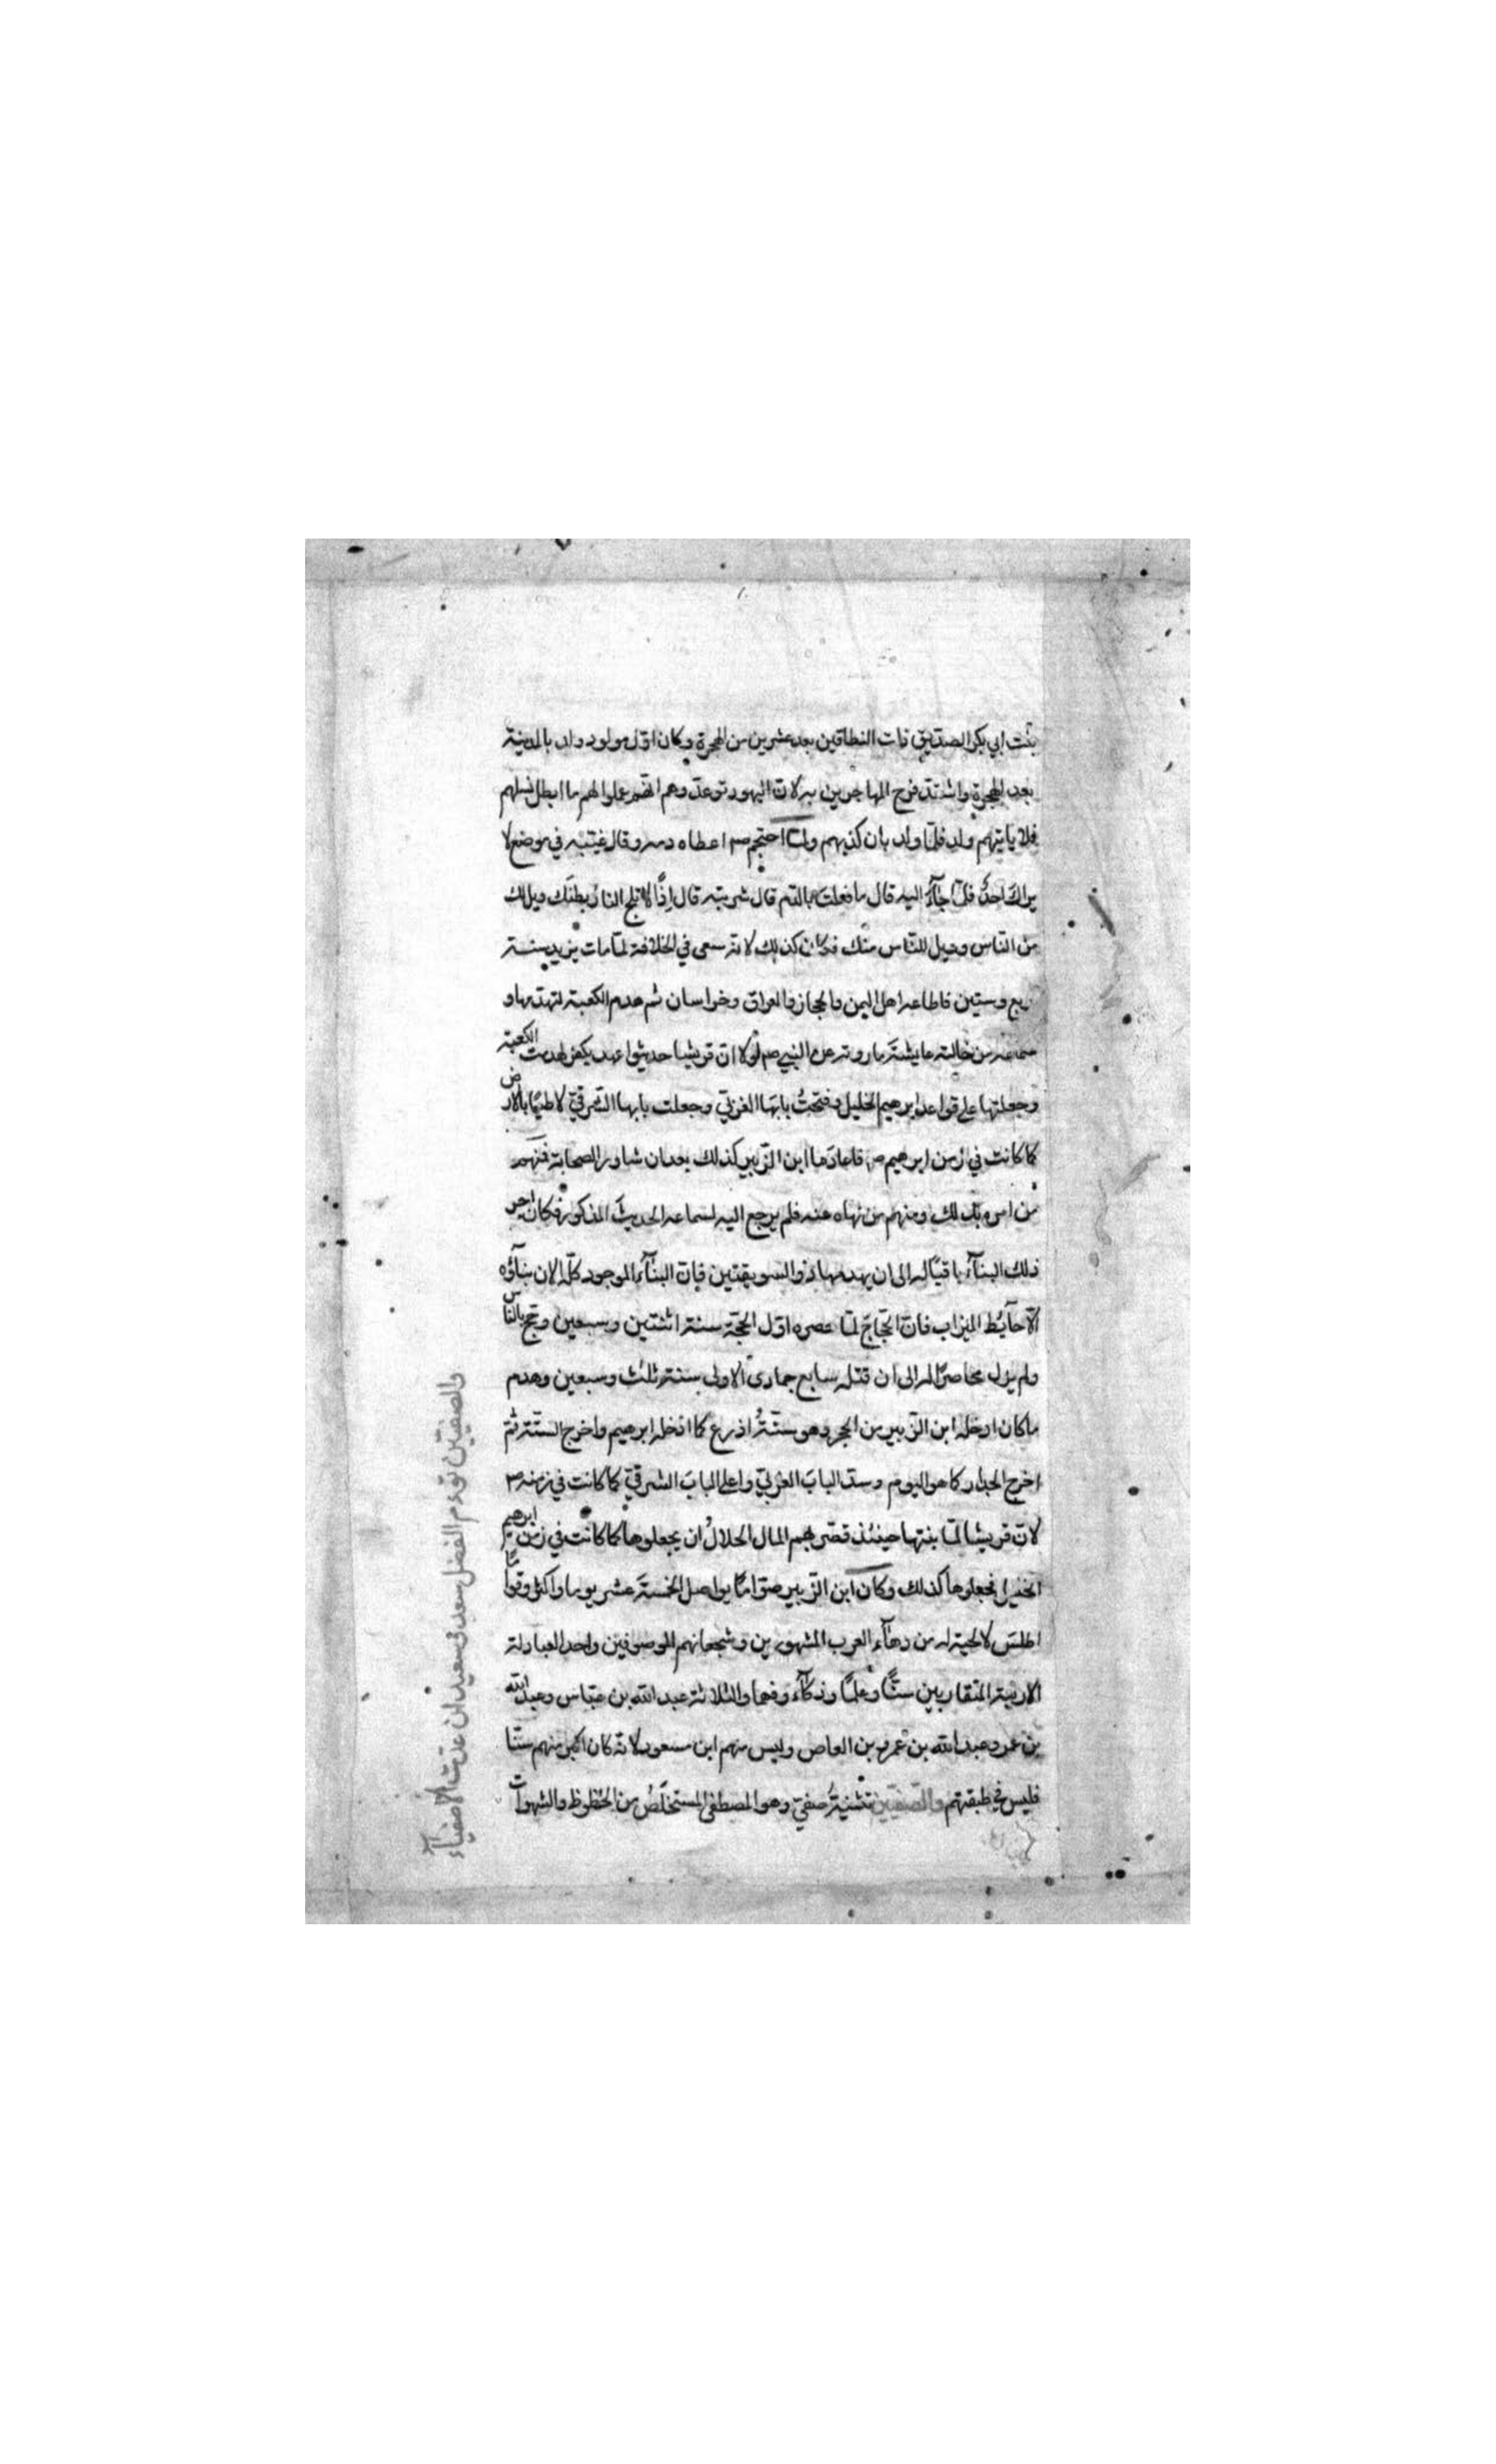 بنت ابي بكر الصديق ذات النطاقين بعد عشرين من الهجرة وكان اوّل مولود ولد بالمدينة
بعد الهجرة واشتدّ فرح المهاجرين به لانّ اليهود توعدوهم انهم عملوا لهم ما ابطل نسلهم
فلا يأتيهم ولد فلمّا ولد بان كذبهم ولمّا احتجم صم اعطاه دمه وقال غيّبه في موضع لا
يراك احدٌ فلمّا جآء اليه قال ما فعلت بالدّم قال شربته قال اِذًا لا تلج النارُ بطنك ويل لك
من النّاس وويل للنّاس منك فكان كذلك لانّه سعى في الخلافة لمّا مات يزيد سنة
ربع وستين فاطاعه اهل اليمن والحجاز والعراق وخراسان ثم هدم الكعبة لتهدّمها و
سماعه من خالته عايشة ما روته عن النبي صم لولا انّ قريشا حديثوا عهد بكفر لهدمت الكعبة
وجعلتها على قواعد ابرهيم الخليل وفتحتُ بابها الغربيّ وجعلت بابها الشرقيّ لاطيًا بالارض
كما كانت في زمن ابرهيم ص فاعادها ابن الزّبير كذلك بعد ان شاور الصحابة فمنهم
من امره بذلك ومنهم من نهاه عنه فلم يرجع اليه لسماعه الحديث المذكور فكان اجر
ذلك البنآء باقيًا له الى ان يهدمها ذو السويقتين فانّ البنآء الموجود كلّه الان بنآؤه
الّا حآيط الميزاب فانّ الحجّاج لمّا حصره اوّل الحجّة سنة اثنتين وسبعين وحج بالناس
ولم يزل محاصرًا له الى ان قتله سابع جمادى الاولى سنة ثلث وسبعين وهدم
ما كان ادخله ابن الزّبير من الحجر وهو ستةُ اذرع كما ادخله ابرهيم واخرج الستّة ثمّ
اخرج الجدار كما هو اليوم وسدّ الباب الغربيّ واعلى الباب الشرقيّ كما كانت في زمنه صم
لانّ قريشا لمّا بنتها حينئذ قصّر بهم المال الحلالُ ان يجعلوها كما كانت في زمن ابرهيم
الخليل فجعلوها كذلك وكان ابن الزّبير صوّامًا يواصل الخمسة عشر يوما واكثر وقوامًا
اطلس لا لحية له من دهآء العرب المشهورين وشجعانهم الموصوفين واحد العبادلة
الاربعة المتقاربين سنًّا وعلمًا وذكآء وفهما والثلاثة عبد الله بن عبّاس وعبد الله
بن عمر وعبد الله بن عمرو بن العاص وليس منهم ابن مسعود لانّه كان اكبر منهم سنّا
فليس في طبقتهم والصفيّين تثنيةُ صفيّ وهو المصطفى المستخلصُ من الحظوظ والشهوات
والصفيّين توءم الفضل سعد وسعيد ان عدت الاصفيآء